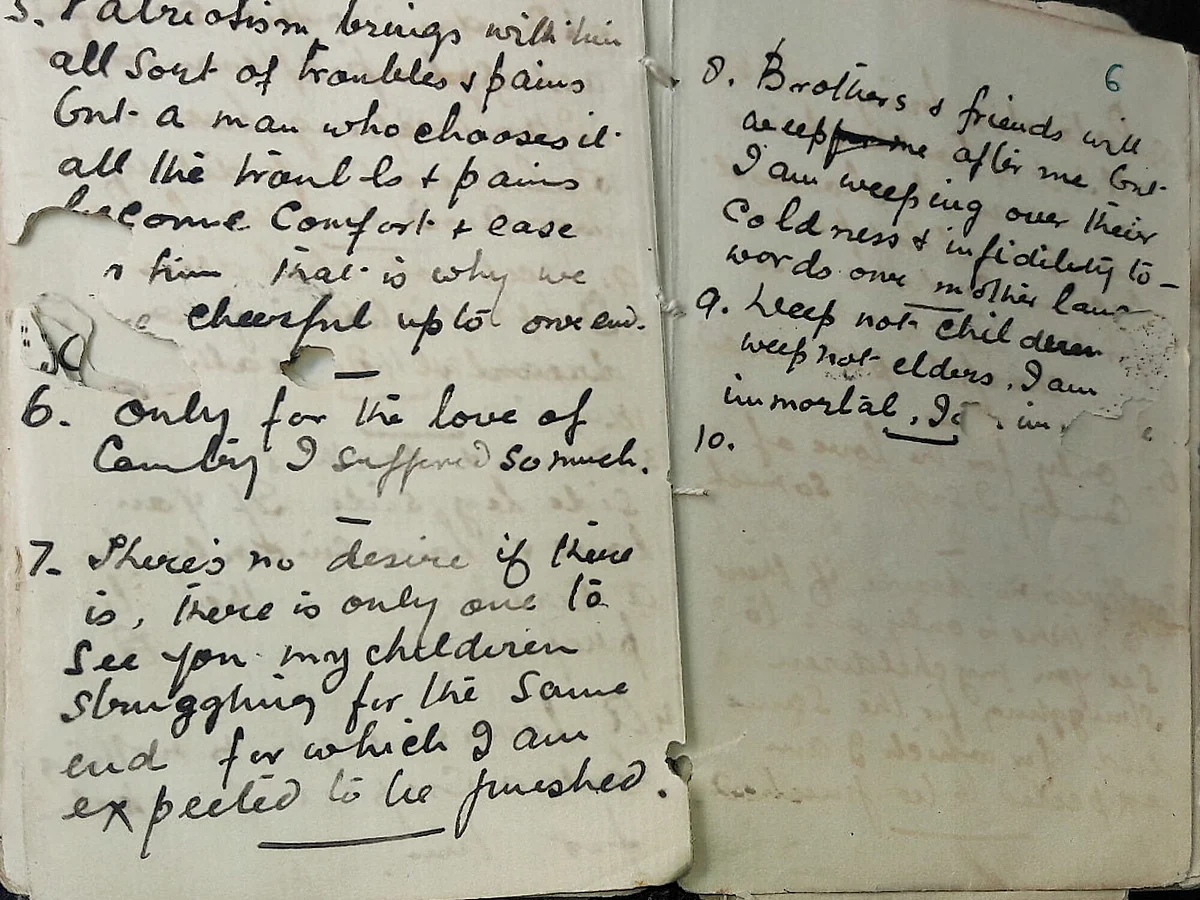 5. Patriotism brings with him
all sort of troubles & pains
but a man who chooses it
all the troubles & pains
become comfort & ease
him that is why we
cheerful up to our end.
6. only for the love of
Country I suffered so much.
7. There's no desire if there
is, there is only one to
see you my childeren
struggling for the same
end for which I am
expected to be punished.
6
8. Brothers & friends will
weep after me but
I am weeping over their
coldness & infidility to-
words our mother
9. Weep not childeren
weep not elders. I am
immortal, I
10.